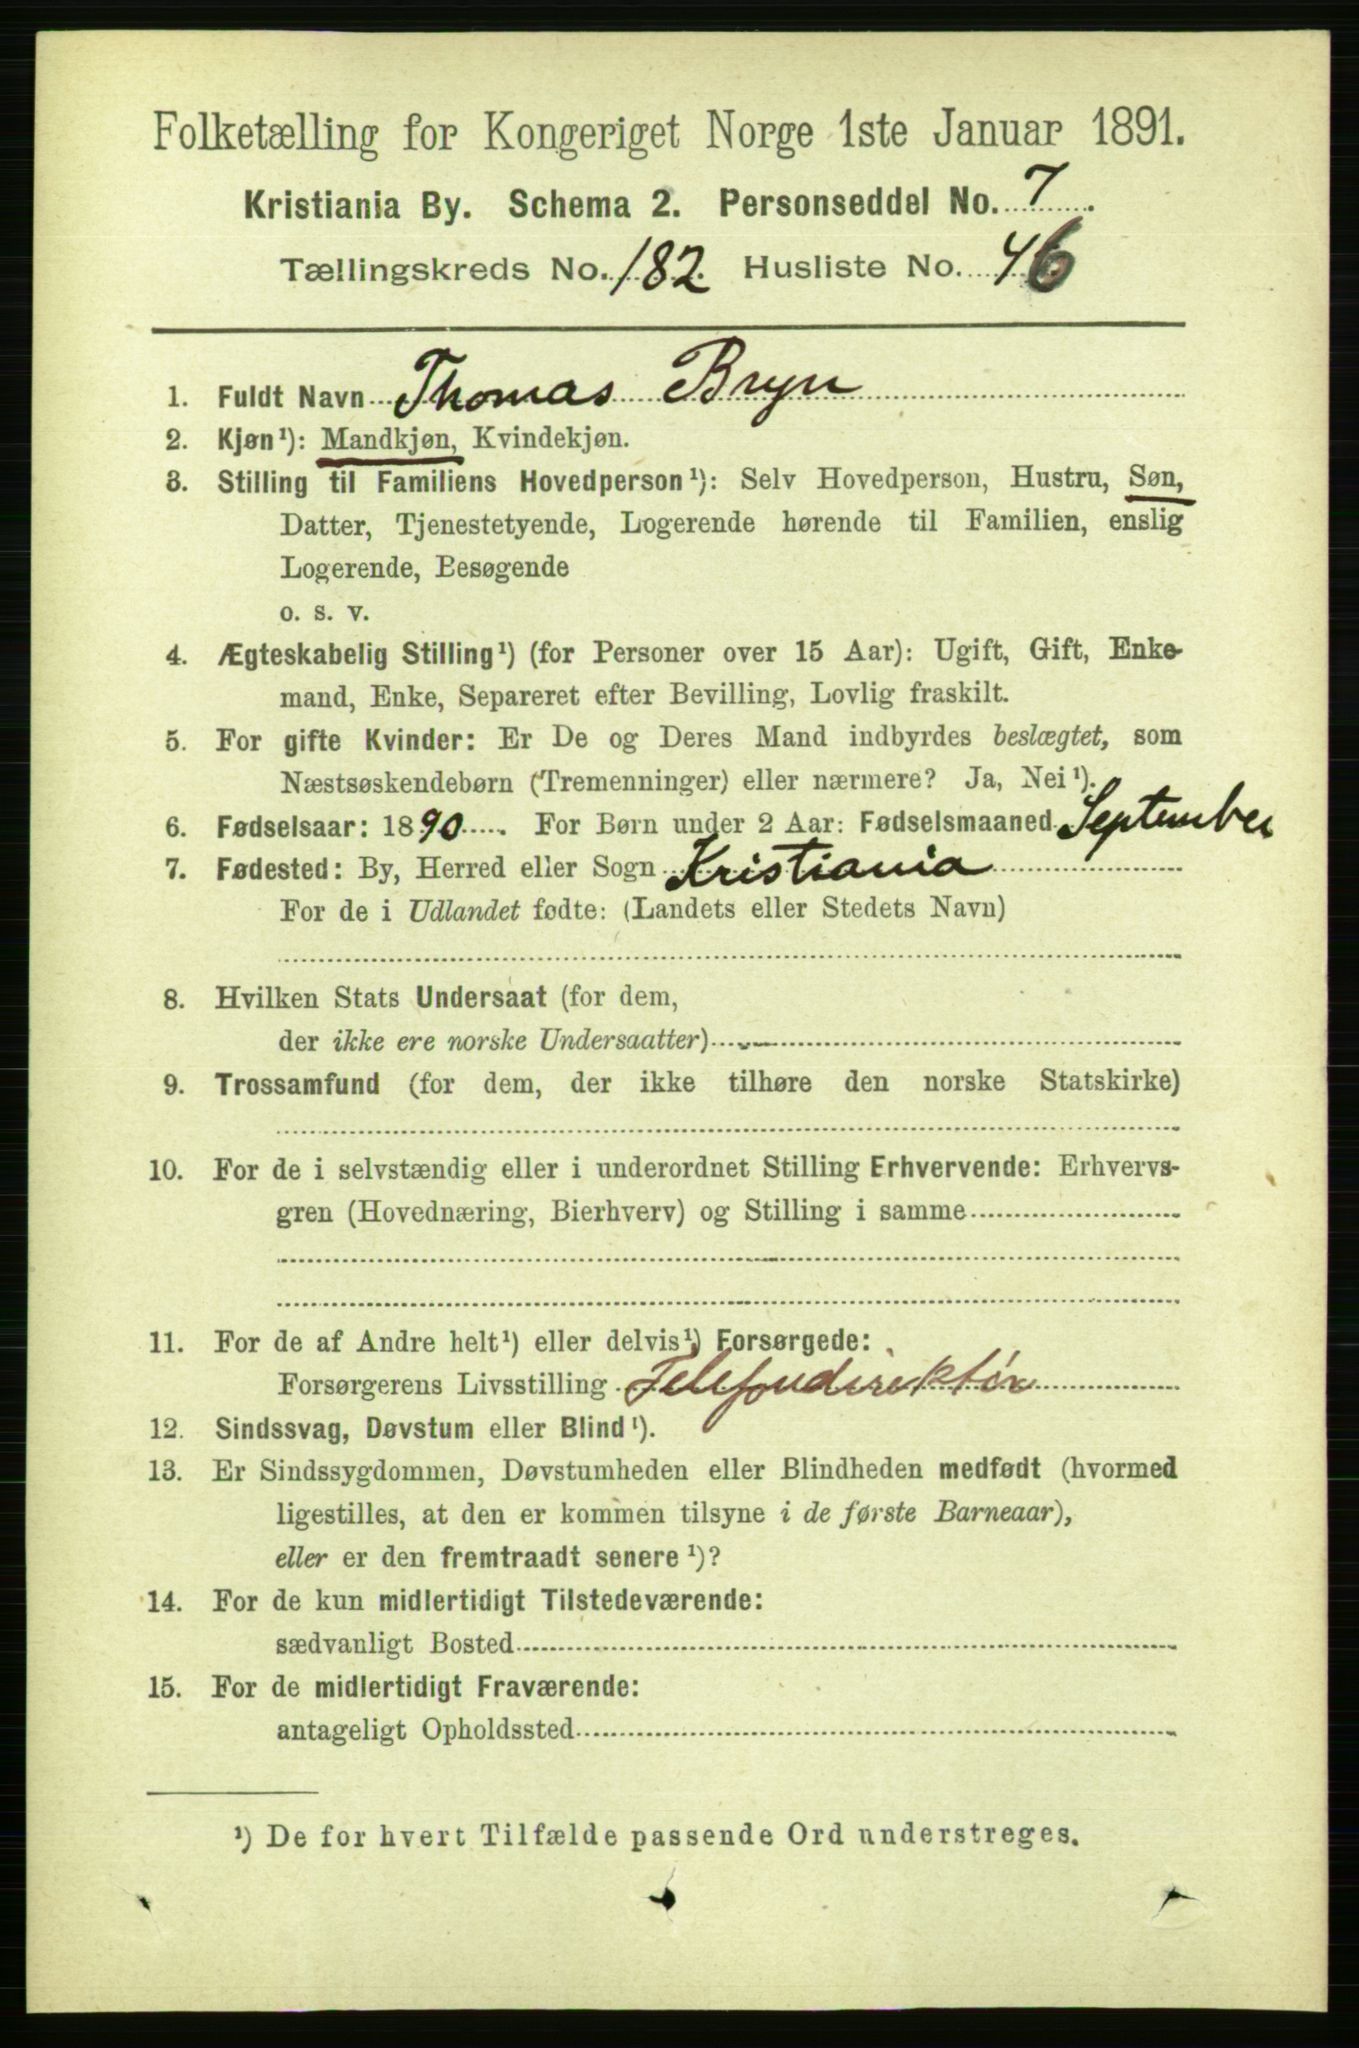 Folketælling for Kongeriget Norge 1ste Januar 1891.
Kristiania By. Schema 2. Personseddel No. 7.
Tællingskreds No. 182. Husliste No. 46
1. Fuldt Navn Thomas Bryn
2. Kjøn¹): Mandkjøn, Kvindekjøn.
3. Stilling til Familiens Hovedperson¹): Selv Hovedperson, Hustru, Søn,
Datter, Tjenestetyende, Logerende hørende til Familien, enslig
Logerende, Besøgende
o. s. v.
4. Ægteskabelig Stilling¹) (for Personer over 15 Aar): Ugift, Gift, Enke-
mand, Enke, Separeret efter Bevilling, Lovlig fraskilt.
5. For gifte Kvinder: Er De og Deres Mand indbyrdes beslægtet, som
Næstsøskendebørn (Tremenninger) eller nærmere? Ja, Nei¹).
6. Fødselsaar: 1890. For Børn under 2 Aar: Fødselsmaaned September
7. Fødested: By, Herred eller Sogn Kristiania
For de i Udlandet fødte: (Landets eller Stedets Navn)
8. Hvilken Stats Undersaat (for dem,
der ikke ere norske Undersaatter)
9. Trossamfund (for dem, der ikke tilhøre den norske Statskirke)
10. For de i selvstændig eller i underordnet Stilling Erhvervende: Erhvervs-
gren (Hovednæring, Bierhverv) og Stilling i samme
11. For de af Andre helt¹) eller delvis¹) Forsørgede:
Forsørgerens Livsstilling Telefondirektör
12. Sindssvag, Døvstum eller Blind¹).
13. Er Sindssygdommen, Døvstumheden eller Blindheden medfødt (hvormed
ligestilles, at den er kommen tilsyne i de første Barneaar),
eller er den fremtraadt senere¹)?
14. For de kun midlertidigt Tilstedeværende:
sædvanligt Bosted
15. For de midlertidigt Fraværende:
antageligt Opholdssted
¹) De for hvert Tilfælde passende Ord understreges.